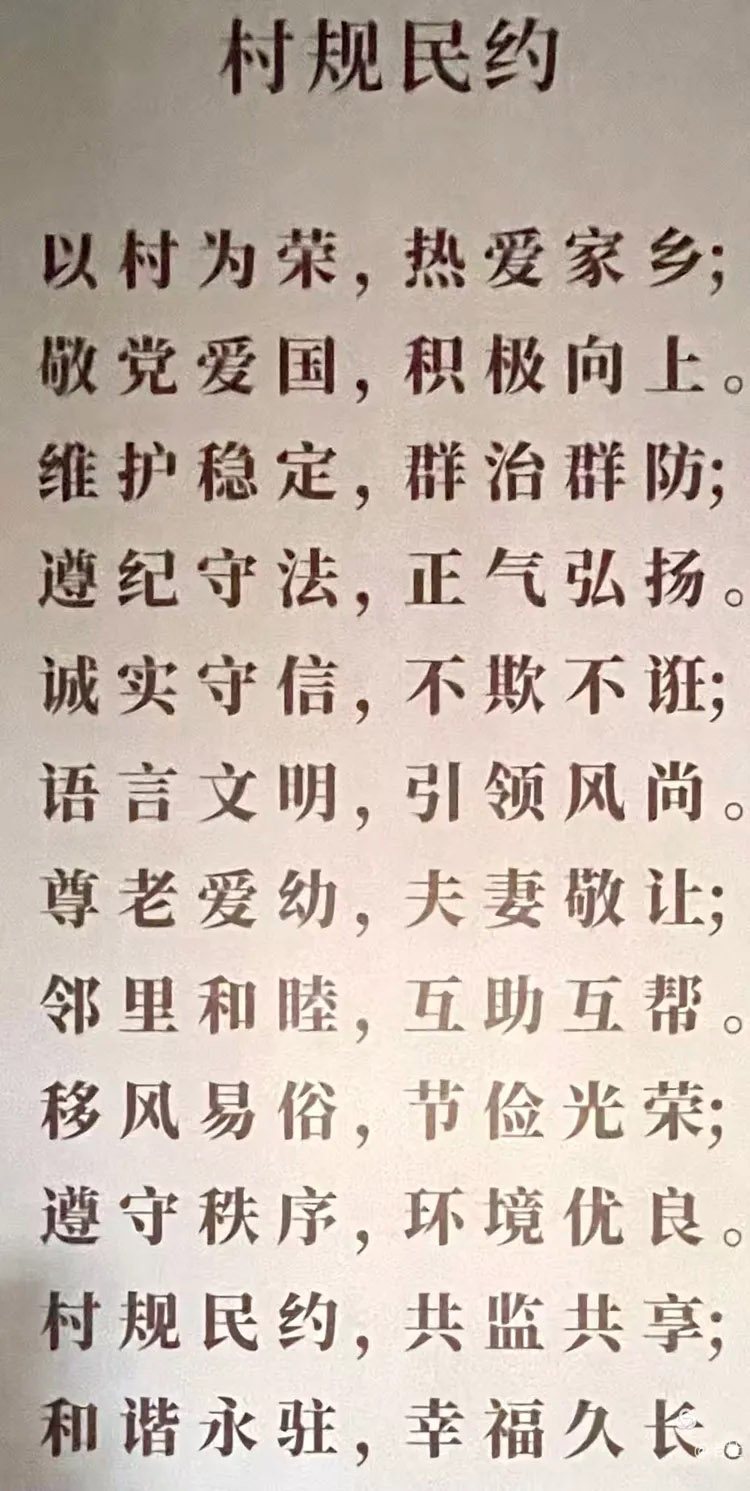 村规民约
以村为荣，热爱家乡；
敬党爱国，积极向上。
维护稳定，群治群防；
遵纪守法，正气弘扬。
诚实守信，不欺不诳；
语言文明，引领风尚。
尊老爱幼，夫妻敬让；
邻里和睦，互助互帮。
移风易俗，节俭光荣；
遵守秩序，环境优良。
村规民约，共监共享；
和谐永驻，幸福久长。